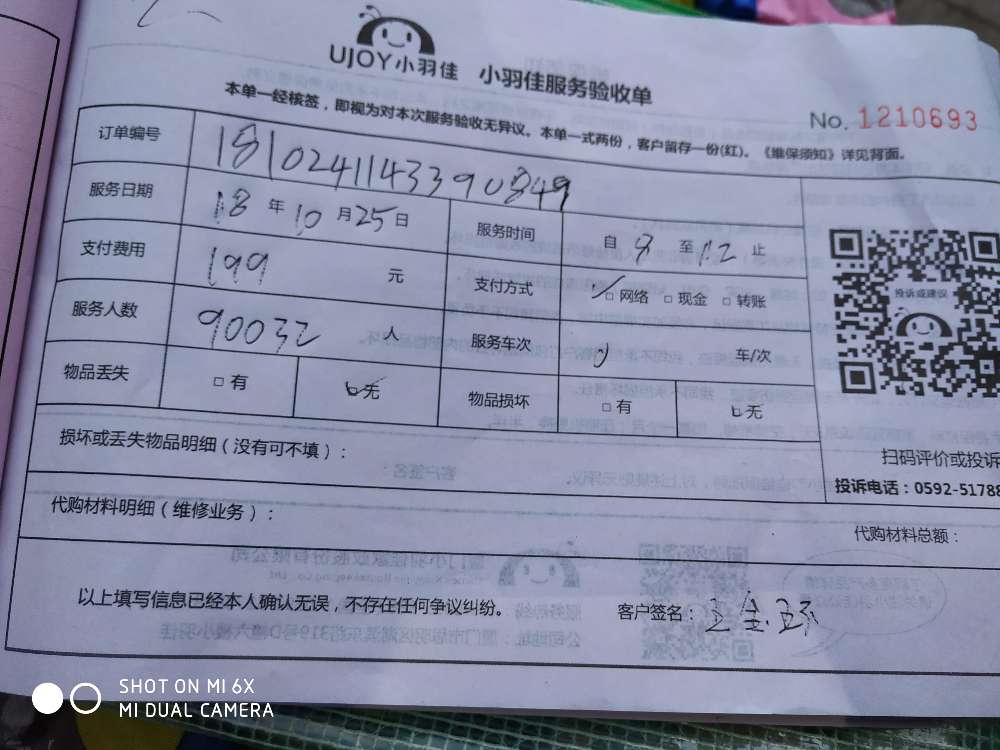 UJOY小羽佳 小羽佳服务验收单
No. 1210693
本单一经核签，即视为对本次服务验收无异议。本单一式两份，客户留存一份(红)。《维保须知》详见背面。
订单编号 1810241143390849
服务日期 18 年 10 月 25 日 服务时间 自 8 至 12 止
支付费用 199 元 支付方式 □ 网络 □ 现金 □ 转账
投诉或建议
服务人数 90032 人 服务车次 车/次
物品丢失 □ 有 □ 无 物品损坏 □ 有 □ 无
损坏或丢失物品明细（没有可不填）：
扫码评价或投诉
投诉电话：0592-51788
代购材料明细（维修业务）：
代购材料总额：
以上填写信息已经本人确认无误，不存在任何争议纠纷。 客户签名：
SHOT ON MI 6X
MI DUAL CAMERA